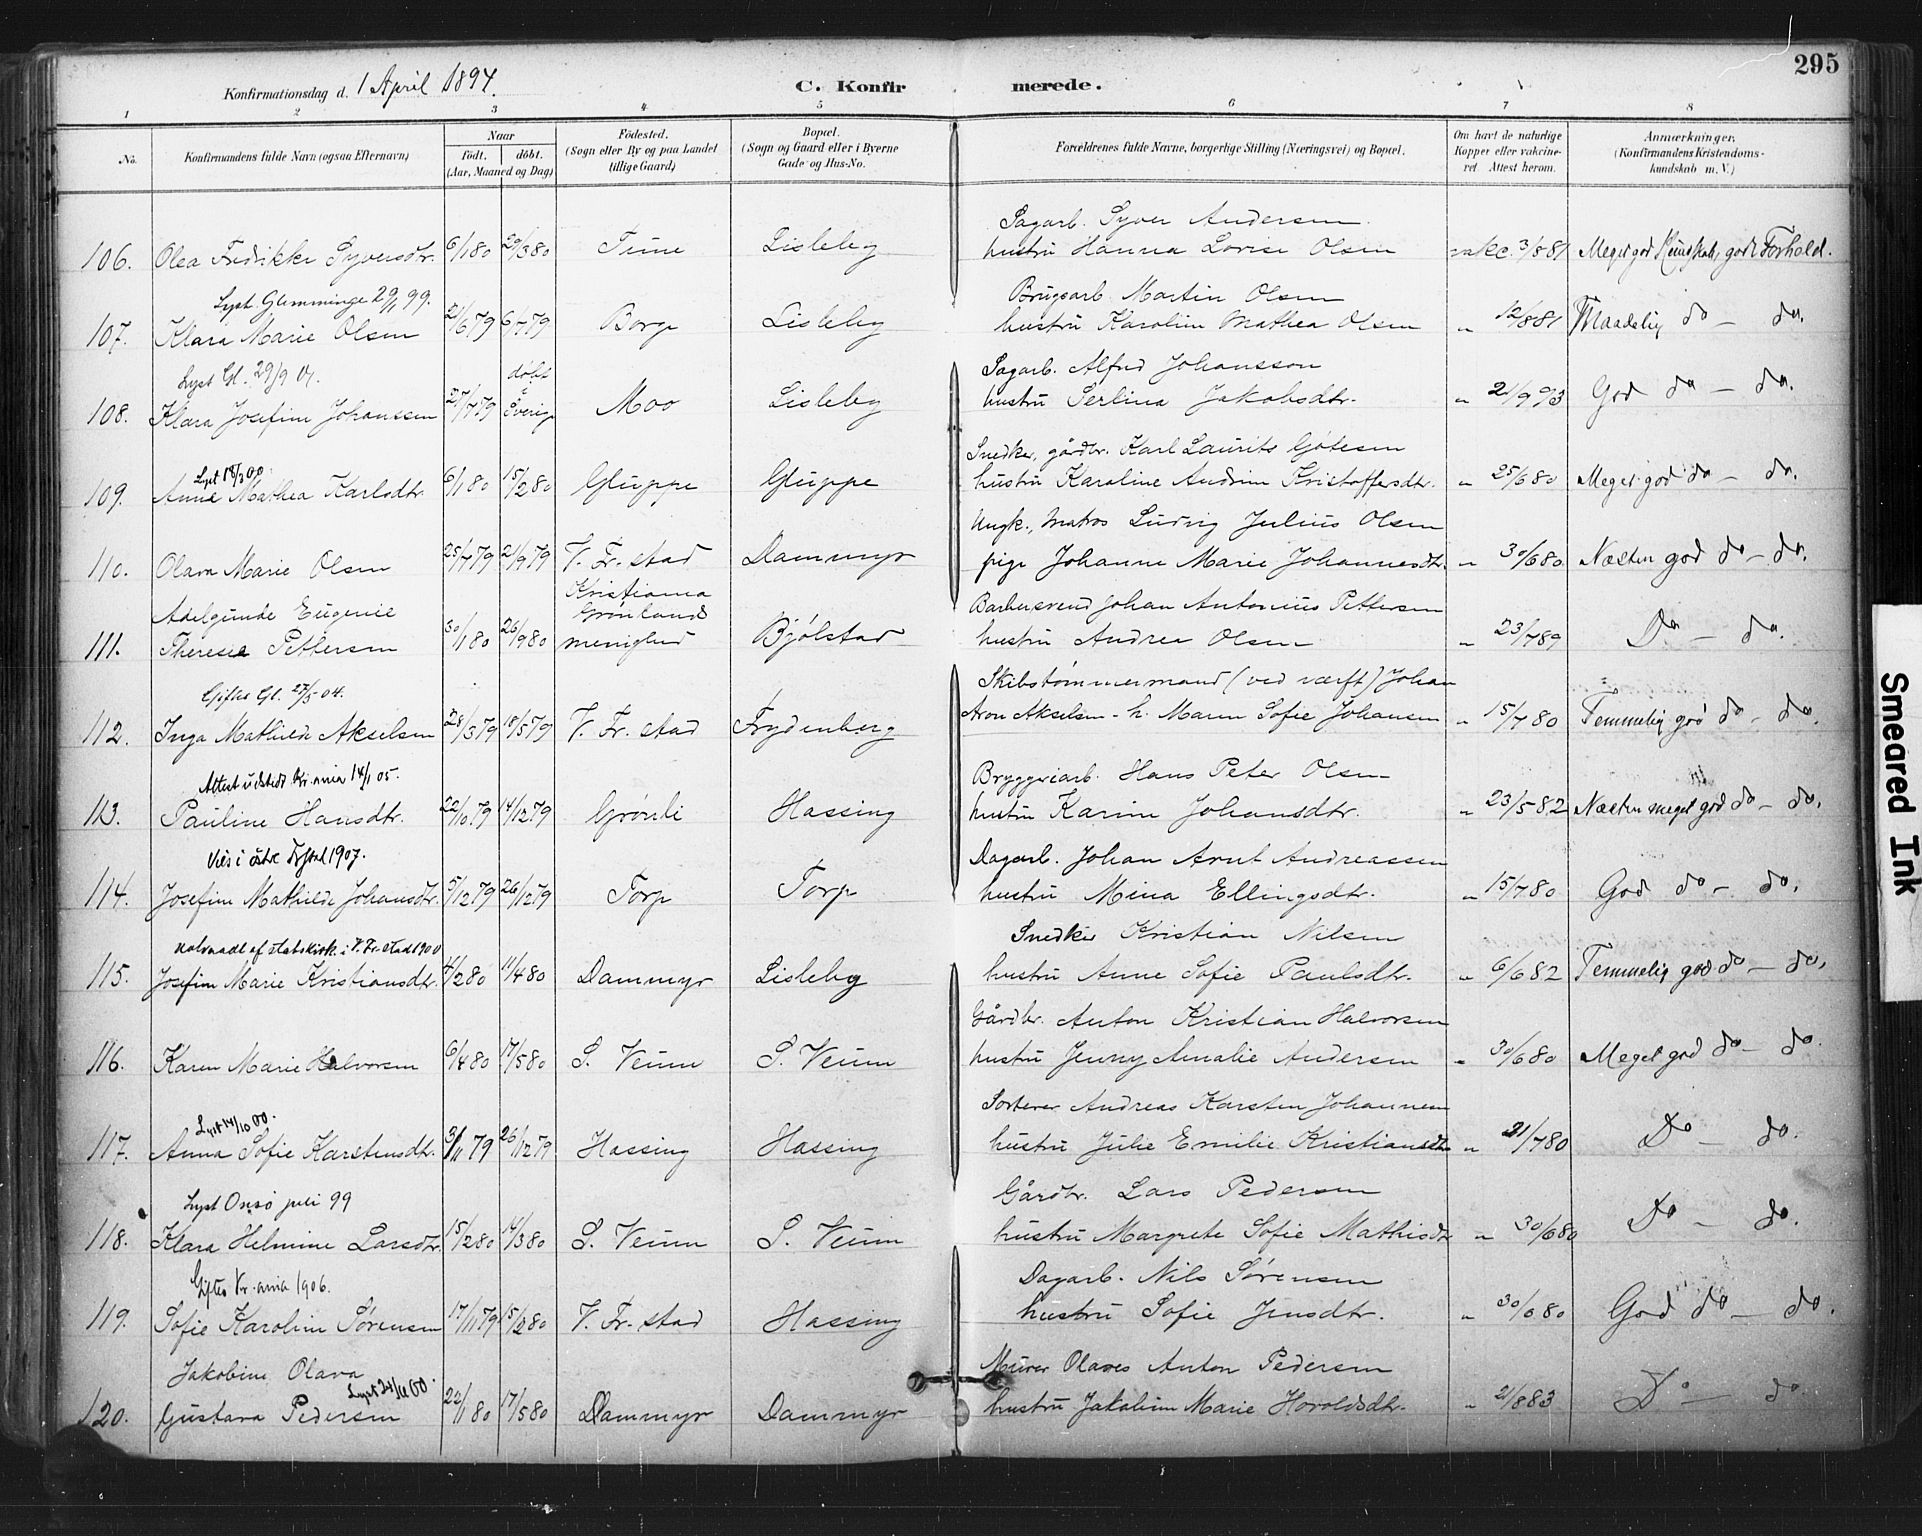 295
Konfirmationsdag d. 1 April 1894. C. Konfirmerede.
1 2 3 4 5 6 7 8
No. Konfirmandens fulde Navn (ogsaa Efternavn) Naar födt. döbt. (Aar, Maaned og Dag) Födested. (Sogn eller By og paa Landet tillige Gaard) Bopæl. (Sogn og Gaard eller i Byerne Gade og Hus-No. Forældrenes fulde Navne, borgerlige Stilling (Næringsvei) og Bopæl. Om havt de naturlige Kopper eller vakcineret Attest herom. Anmærkninger. (Konfirmandens Kristendomskundskab m. V.)
Sagarb. Syver Andersen
106. Olea Fredrikke Syversdtr. 6/1 80 29/3 80 Tune Lisleby hustru Hanna Lovise Olsen vakc. 3/8 81 Meget god Kundskab, godt Forhold.
Lyst Glemminge 29/1 99. Brugsarb. Martin Olsen
107. Klara Marie Olsen 21/6 79 6/7 79 Borge Lisleby hustru Karolin Mathea Olsen " 12/8 81 Maadelig do - do.
Lyst Gl. 29/9 01. døbt i Sverige Sagarb. Alfred Johansson
108. Klara Josefine Johanssen 27/7 79 Moo Lisleby hustru Serlina Jakobsdtr. " 21/9 93 God do - do.
Lyst 18/3 00. Snedker, gårdbr. Karl Laurits Gøtesen
109. Anne Mathea Karlsdtr. 6/1 80 15/2 80 Gluppe Gluppe hustru Karoline Andrine Kristoffersdtr. " 25/6 80 Meget god do - do.
Ungk., matros Ludvig Julius Olsen
110. Olava Marie Olsen 25/7 79 21/9 79 V. Fr. stad Dammyr pige Johanne Marie Johannesdtr. " 30/6 80 Næsten god do - do.
Adelgunde Eugenie Kristiania Grønlands Barbersvend Johan Antonius Pettersen
111. Therese Pettersen 30/1 80 26/9 80 menighed Bjølstad hustru Andrea Olsen " 23/7 89 Do - do.
Giftes Gl. 27/5 04. Skibstømmermand (ved værft) Johan
112. Inga Mathilde Akselsen 28/3 79 18/5 79 V. Fr. stad Frydenberg Aron Akselsen - h. Maren Sofie Johansen " 15/7 80 Temmelig god do - do.
Attest udstedt Kr.ania 14/1 05. Bryggeriarb. Hans Peter Olsen
113. Pauline Hansdtr. 22/10 79 14/12 79 Grønli Hassing hustru Karine Johansdtr. " 23/5 82 Næsten meget god do - do.
Vies i 1907. Dagarb. Johan Arnt Andreassen
114. Josefine Mathilde Johansdtr. 5/12 79 26/12 79 Torp Torp hustru Mina Ellingsdtr. " 15/7 80 God do - do.
udmeldt af statskirk. i V. Fr. stad 1900 Snedker Kristian Nilsen
115. Josefine Marie Kristiansdtr. 4/2 80 11/4 80 Dammyr Lisleby hustru Anne Sofie Paulsdtr. " 6/6 82 Temmelig god do - do.
Gårdbr. Anton Kristian Halvorsen
116. Karen Marie Halvorsen 6/4 80 17/5 80 S. Veum S. Veum hustru Jenny Amalie Andersen " 30/6 80 Meget god do - do.
Lyst 14/10 00. Sorterer Andreas Karsten Johannesen
117. Anna Sofie Karstensdtr. 3/11 79 26/12 79 Hassing Hassing hustru Julie Emilie Kristiansdtr " 21/7 80 Do - do.
Lyst Onsø juli 99 Gårdbr. Lars Pedersen
118. Klara Helmine Larsdtr. 15/2 80 14/3 80 S. Veum S. Veum hustru Margrete Sofie Mathisdtr " 30/6 80 Do - do.
Giftes Kr.ania 1906. Dagarb. Nils Sørensen
119. Sofie Karoline Sørensen 17/11 79 15/2 80 V. Fr. stad Hassing hustru Sofie Jensdtr. " 30/6 80 God do - do.
Jakobine Olava Lyst 24/6 00. Murer Olaves Anton Pedersen
120. Gustava Pedersen 22/1 80 17/5 80 Dammyr Dammyr hustru Jakobine Marie Haroldsdtr. " 21/8 83 Do - do
Smeared Ink